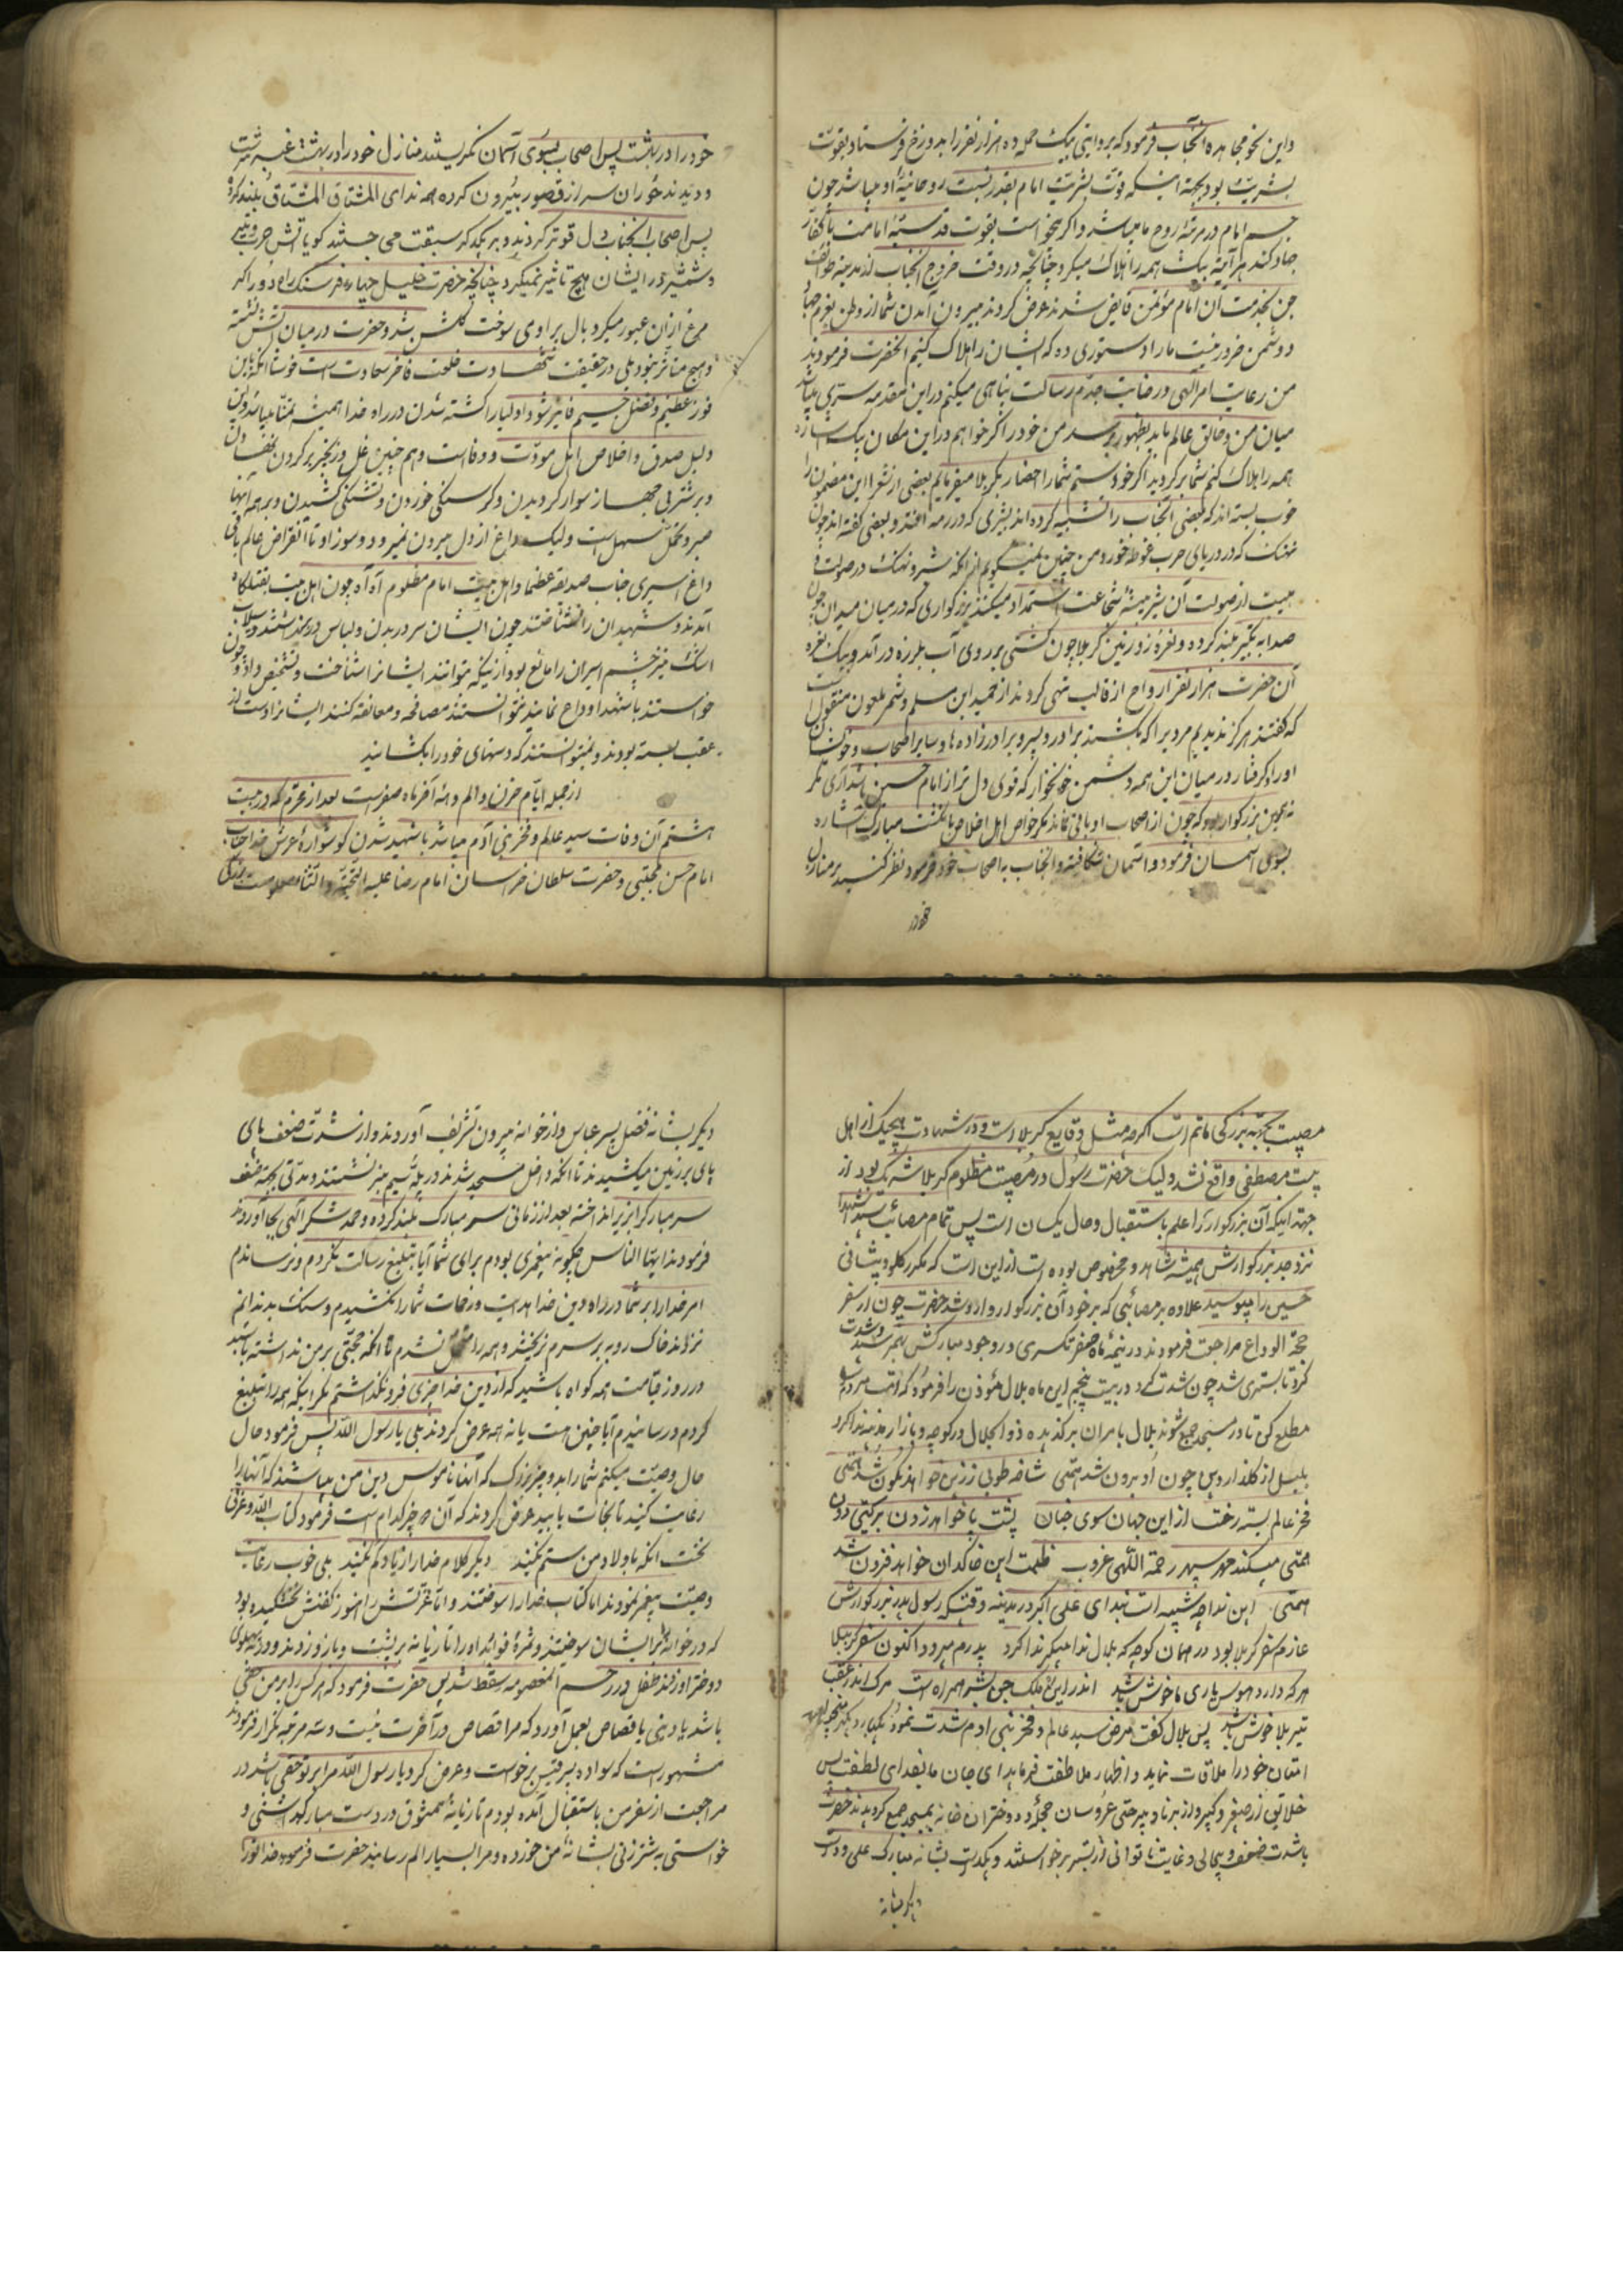 و این نحو مجاهده آنجناب فرمود که بروایتی بیک حمله ده هزار نفر را بدوزخ فرستاد بقوت
بشریت بود بجهة اینکه قوت بشریت امام بقدر نسبت روحانیة او میباشد چون
جسم امام در مرتبهٔ روح ما میباشد و اگر میخواست بقوت قدسیهٔ امامت با کفار
جهاد کند هر آینه یک همه را هلاک میکرد چنانچه در وقت خروج آنجناب از مدینه طوائف
جن بخدمت آن امام مؤتمن فایض شدند عرض کردند بیرون آمدن شما از وطن بعزم جهاد
دشمن ضرور نیست ما را دستوری ده که ایشان را هلاک کنیم آنحضرت فرمودند
من رعایت امر الهی و رضایت جدم رسالت پناهی میکنم در این مقدمه سری میباشد
میان من و خالق عالم باید بظهور رسد من خود را اگر خواهم در این مکان بیک اشاره
همه را هلاک کنم شما برگردید اگر خواستم شما را احضار بکربلا میفرمایم بعضی از شعرا این مضمون را
خوب بسته اند که بعضی آنجناب را تشبیه کرده اند بشیری که در رمه افتد و بعضی گفته اند چون
نهنگ که در دریای حرب غوطه خورد من چنین نمیگویم از آنکه شیر و نهنگ در صولت و
هیبت از صولت آن شیر بیشهٔ شجاعت استمداد میکنند بزرگواری که در میان میدان چون
صدا به تکبیر بلند کرده و نعره زد زمین کربلا چون کشتی بر روی آب بلرزه در آمد و بیک نعره
آن حضرت هزار نفر ارواح از قالب تهی کردند از حمید ابن مسلم و شمر ملعون منقول است
که گفتند هرگز ندیدیم مردیرا که بکشند برادر و پسر و برادرزاده ها و سایر اصحاب و خویشان
او را و گرفتار در میان این همه دشمن خونخوار که قوی دل تر از امام حسین باشد آری مگر
نه همین بزرگوار بود که چون از اصحاب او باقی نماند مگر خواص اهل اخلاص با انگشت مبارک اشاره
بسوی آسمان فرمود و آسمان شکافته و آنجناب به اصحاب خود فرمود نظر کنید بر منازل
خود را
خود را در بهشت پس اصحاب بسوی آسمان نگریستند منازل خود را در بهشت عنبر سرشت
و دیدند حوران سر از قصور بیرون کرده همه ندای المشتاق المشتاق بلند کرده
پس اصحاب آنجناب دل قوی تر کردند و بر یکدیگر سبقت می جستند گویا آتش حرب و تیر
و شمشیر در ایشان هیچ تاثیر نمیکرد چنانچه حضرت خلیل چهار فرسنگ راه دور اگر
مرغ از آن عبور میکرد بال پر او می سوخت گلشن شد و حضرت در میان آتش نشسته
و هیچ متاثر نبود بلی در حقیقت شهادت خلعت فاخر سعادت است خوشا آنکه باین
فوز عظیم و فضل جسیم فایز شود اولیا را کشته شدن در راه خدا همیشه تمنا میباشد و این
دلیل صدق و اخلاص اهل مودّت و وفا است و هم چنین غل و زنجیر بر گردن نهادن
و بر شتر بی جهاز سوار گردیدن و گرسنگی خوردن و تشنگی کشیدن و بر همه اینها
صبر و تحمل سهل است ولیک داغ از دل بیرون نمیرود و سوز او تا انقراض عالم باقی
داغ اسیری جناب صدیقه عظما و اهل بیت امام مظلوم آه آه چون اهل بیت بقتلگاه
آمدند و شهیدان را نشناختند چون ایشان سر در بدن و لباس در بر نداشتند و سیلاب
اشک نیز چشم اسیران را مانع بود از اینکه توانند ایشانرا شناخت و تشخیص داد و چون
خواستند با شهدا وداع نمایند نتوانستند مصافحه و معانقه کنند ایشانرا دست از
عقب بسته بودند و نمیتوانستند که دستهای خود را بگشایند
از جمله ایام حزن و الم دهه آخر ماه صفر است بعد از محرم که در بیست
هشتم آن وفات سید عالم و فخر بنی آدم میباشد با شهید شدن گوشوارهٔ عرش خدا جناب
امام حسن مجتبی و حضرت سلطان خراسان امام رضا علیه التحیة و الثنا
مصیبت بجهة بزرگی ماتم است اگرچه مثل وقایع کربلا است و در شهادت هیچیک از اهل
بیت مصطفی واقع نشد ولیک حضرت رسول در مصیبت مظلوم کربلا شریک بود از
جهة اینکه آن بزرگوار را علم باستقبال و حال یکسان است پس تمام مصائب سید الشهدا
نزد جد بزرگوارش همیشه شاهد و مخصوص بوده است از این است که مکرر گلو و پیشانی
حسین را میبوسید علاوه بر مصائبی که بر خود آن بزرگوار وارد شد حضرت چون از سفر
حجة الوداع مراجعت فرمودند در نیمهٔ ماه صفر تکسری در وجود مبارکش بهمرسید و شدت
کرد تا بستری شد چون شدت کرد در بیست پنجم این ماه بلال مؤذن را فرمود که امت مردم را
مطلع کن تا در مسجد جمع شوند بلال با مر آن برگذیده ذو الجلال در کوچه و بازار مدینه ندا کرد
بلبل از گلذار دین چون او برون شد امتی شاخه طوبی ززین خواهد نگون شد امتی
فخر عالم بسته رخت از این جهان سوی جنان پشت پا خواهد زدن بر گیتی دون
امتی میکند مهر سپهر رحمة اللهی غروب ظلمت این خاکدان خواهد فزون شد
امتی این ندا چه شبیه است بندای علی اکبر در مدینه وقتیکه رسول پدر بزرگوارش
عازم سفر کربلا بود در همان کوچه که بلال ندا میکرد ندا کرد پدرم میرود اکنون سفر کربلا
هر که دارد هوس یاری ما خوش باشد اندر این ملک چون بشیر همراه است مرگ اندر عقب
تیر بلا خوش باشد پس بلال گفت مرض سید عالم و فخر بنی آدم شدت نموده یکبار دیگر میخواهد
امتان خود را ملاقات نماید و اظهار ملاطفت فرماید ای جان ما بفدای لطفت پس
خلایق از صغیر و کبیر و از برنا و پیر حتی عروسان حجله و دختران خانه بمسجد جمع گردیدند حضرت
با شدت ضعف و بیحالی و غایت ناتوانی از بستر برخواستند و یکدست بشانه مبارک علی و دست
دیگر بشانه
دیگر بشانه فضل پسر عباس و از خوانه بیرون تشریف آوردند و از شدت ضعف پای
پای بر زمین میکشیدند تا آنکه داخل مسجد شدند در پله سیم منبر نشستند و مدتی بجهة ضعف
سر مبارکرا بزیر انداخته بعد از زمانی سر مبارک بلند کرده و حمد شکر الهی بجا آوردند
فرمودند ایها الناس چگونه پیغمبری بودم برای شما آیا تبلیغ رسالت نکردم و نرساندم
امر خدا را بر شما در راه دین خدا اذیت و زحمات شما را نکشیدم و سنگ بدندانم
نزدند خاک روبه بر سرم نریختند و همه را متحمل نشدم تا آنکه حجتی بر من نداشته باشید
در روز قیامت همه گواه باشید که از دین خدا چیزی فرو نگذاشتم مگر اینکه همه را تبلیغ
کردم و رسانیدم آیا چنین هست یا نه همه عرض کردند بلی یا رسول الله پس فرمود حال
حال وصیت میکنم شما را بدو چیز بزرگ که آنها ناموس دین من میباشند که آنها را
رعایت کنید تا نجات یابید عرض کردند که آن دو چیز کدام است فرمود کتاب الله و عترتی
نخست آنکه باولاد من ستم نکنید دیگر کلام خدا را از یاد گم نکنید بلی خوب رعایت
وصیت پیغمبر نمودند اما کتاب خدا را سوختند و اما عترتش را هنوز کفنش نخشکیده بود
که در خوانه بر ایشان سوختند و ثمرهٔ فوائد او را تازیانه بر پشت و بازو زدند و در به پهلوی
دختر او زدند طفل در رحم آنمعصومه سقط شد پس حضرت فرمود که هر کس را بر من حقی
باشد یا دینی یا قصاص بعمل آورد که مرا قصاص در آخرت نیست و سه مرتبه تکرار فرمودند
مشهور است که سواده بن قیس برخواست و عرض کرد یا رسول الله مرا بر تو حقی باشد در
مراجعت از سفر من باستقبال آمده بودم تازیانهٔ ممشوق در دست مبارک داشتی و
خواستی به شتر زنی بشانهٔ من خورده و مرا بسیار الم رسانید حضرت فرمود خدا تو را